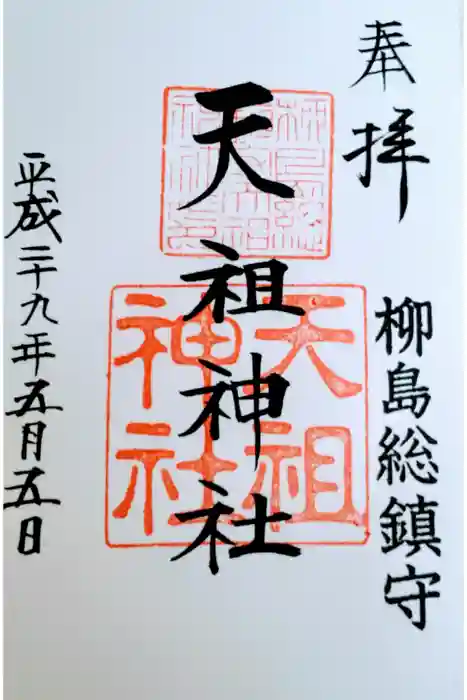 奉拝
柳島総鎮守
天祖神社
天祖
神社
平成二十九年五月五日